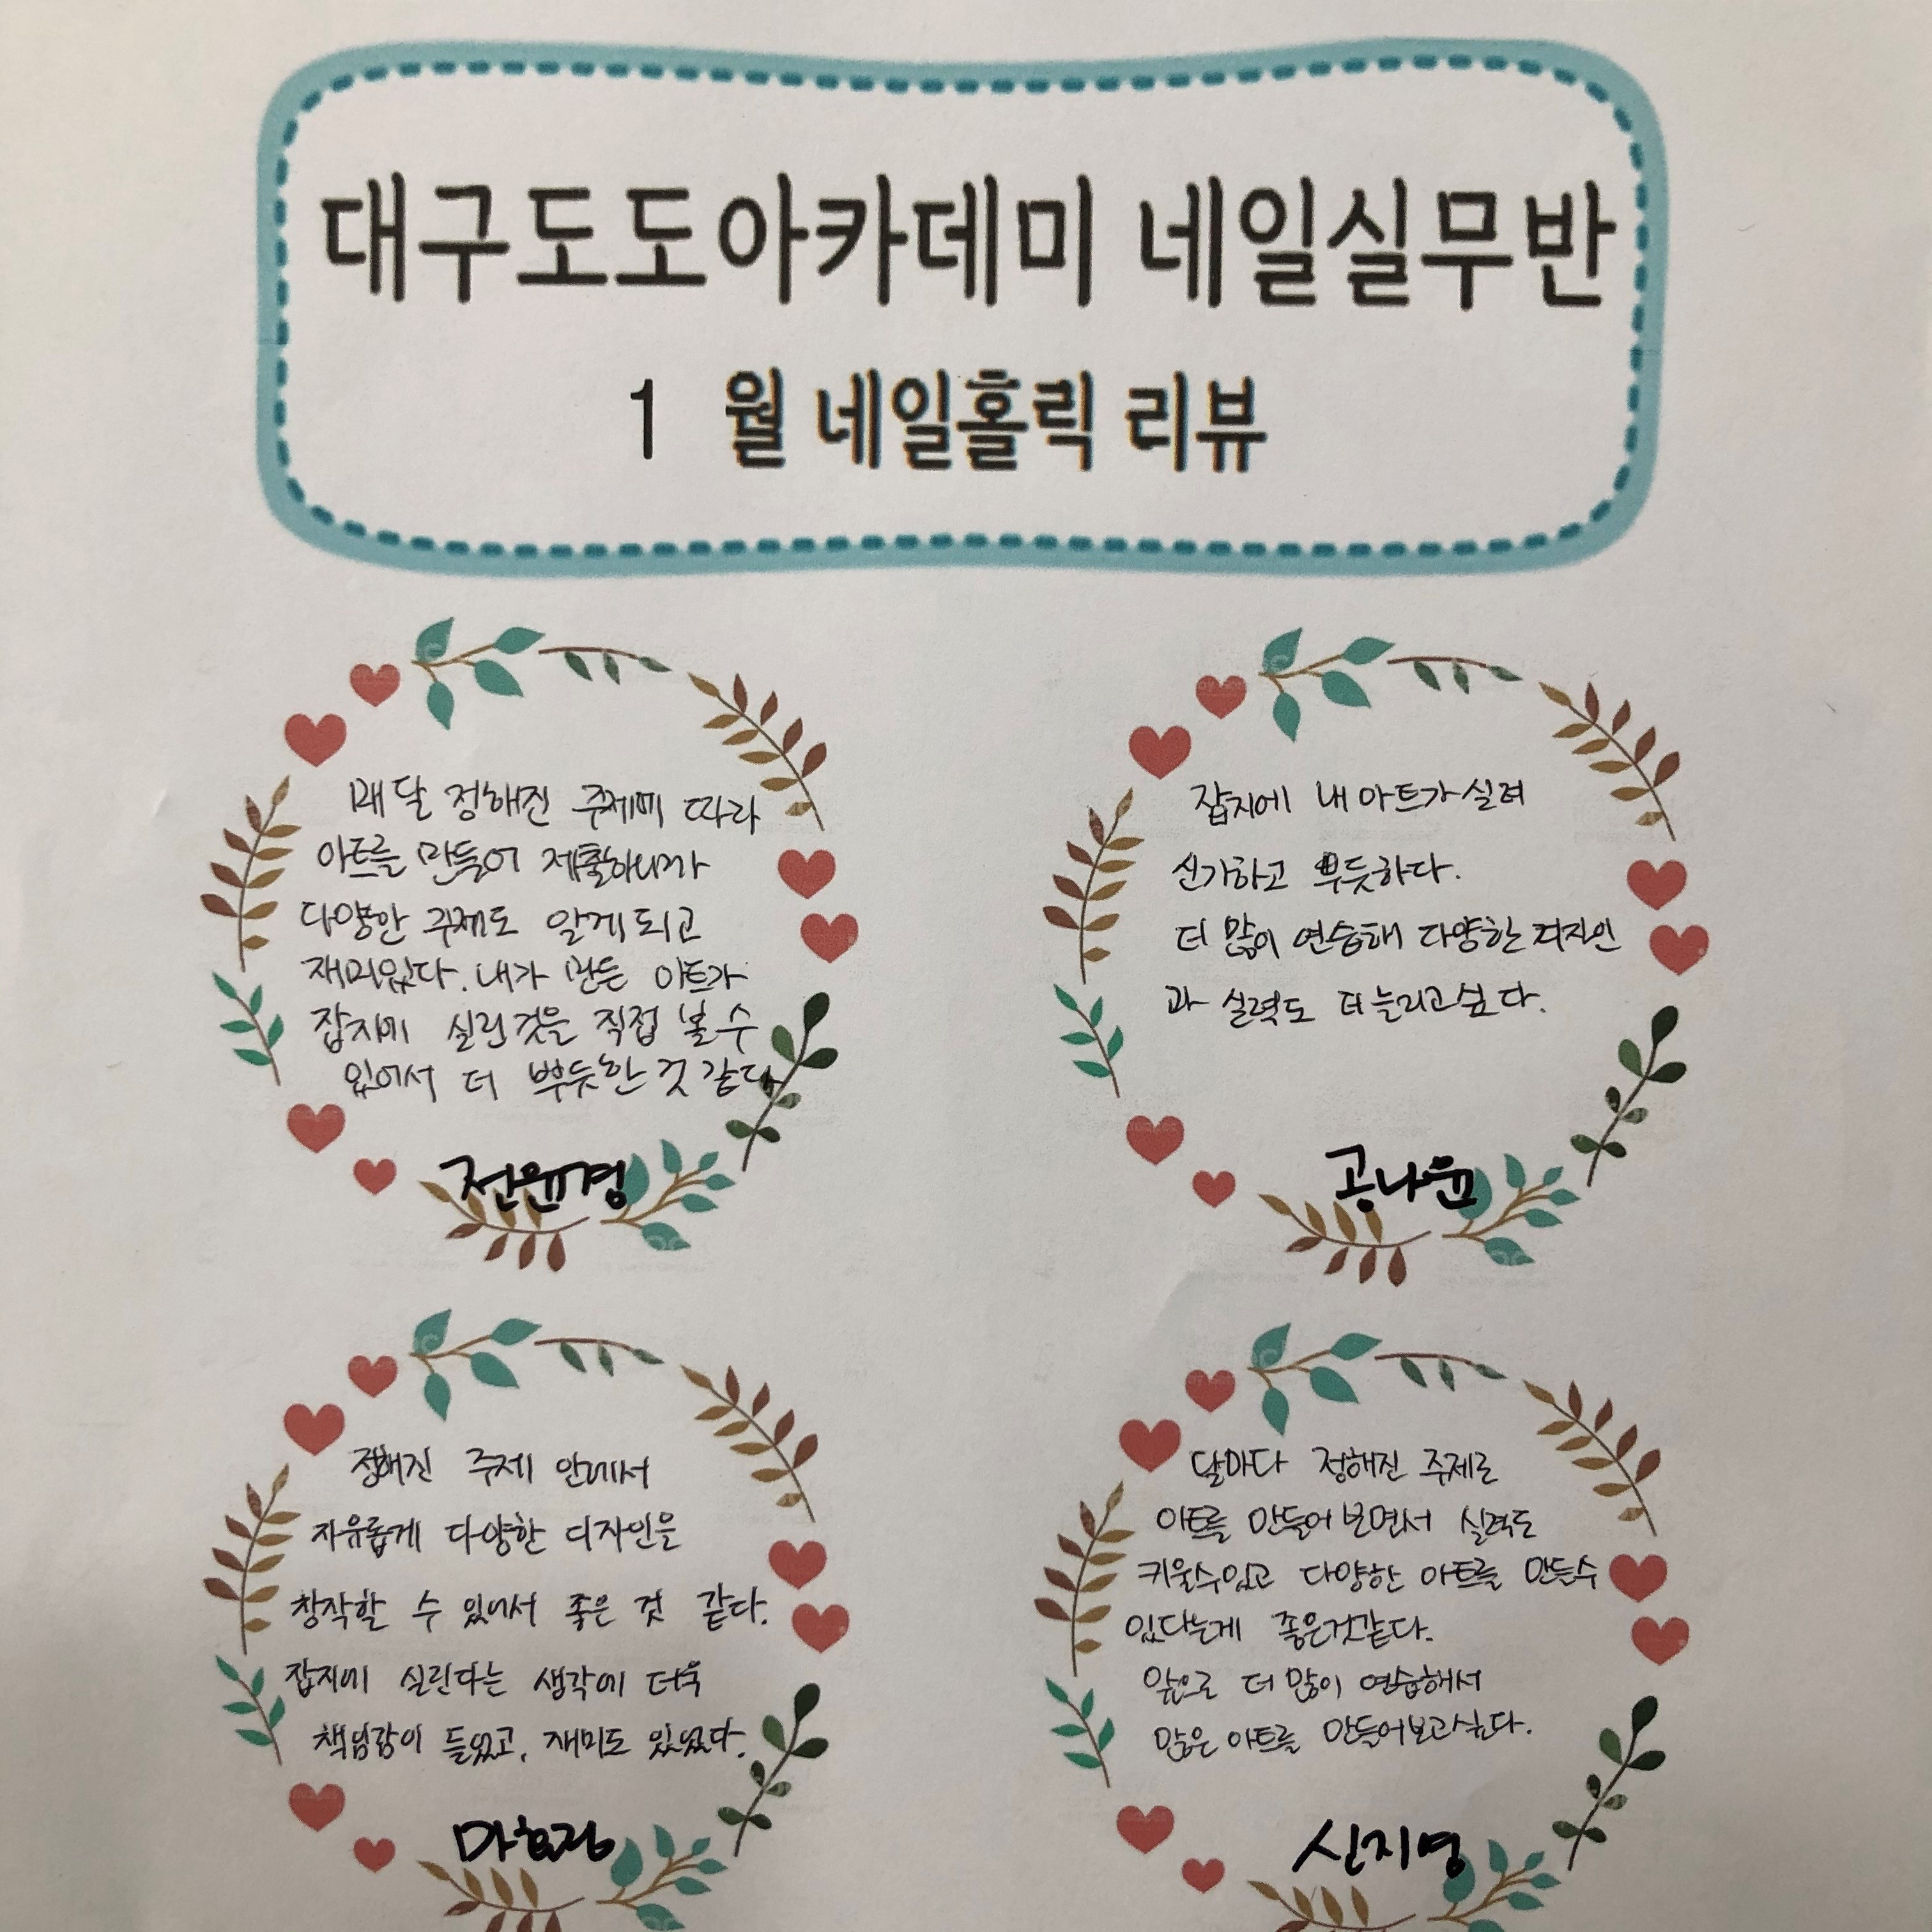 대구도도아카데미 네일실무반
1 월 네일홀릭 리뷰
매달 정해진 주제에 따라
아트를 만들어 제출하니까
다양한 주제도 알게되고
재미있다. 내가 만든 아트가
잡지에 실린것을 직접 볼 수
있어서 더 뿌듯한 것 같다
전윤경
잡지에 내 아트가 실려
신기하고 뿌듯하다.
더 많이 연습해 다양한 디자인
과 실력도 더 늘리고싶다.
공나윤
정해진 주제 안에서
자유롭게 다양한 디자인을
창작할 수 있어서 좋은 것 같다.
잡지에 실린다는 생각에 더욱
책임감이 들었고, 재미도 있었다.
달마다 정해진 주제로
아트를 만들어보면서 실력도
키울수있고 다양한 아트를 만들수
있다는게 좋은것같다.
앞으로 더 많이 연습해서
많은 아트를 만들어보고싶다.
신지영